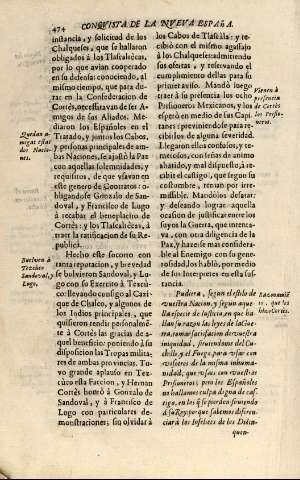 474 CONQUISTA DE LA NUEVA ESPAÑA.
instancia, y solicitud de los
Chalqueses, que se hallaron
obligados à los Tlascaltécas,
por lo que avian cooperado
en su defensa: conociendo, al
mismo tiempo, que para du-
rar en la Confederacion de
Cortès, necessitavan de ser A-
migos de sus Aliados. Me-
diaron los Españoles en el
Tratado, y juntos los Cabos,
y personas principales de am-
bas Naciones, se ajustò la Paz
con aquellas solemnidades, y
requisitos, de que vsavan en
este genero de Contratos: o-
bligandose Gonzalo de San-
doval, y Francisco de Lugo
à recabar el beneplacito de
Cortès: y los Tlascaltécas, à
traer la ratificacion de su Re-
publica.
Quedan a-
migas estas
dos Nacio-
nes.
Hecho este socorro con
tanta reputacion, y brevedad
se bolvieron Sandoval, y Lu-
go con su Exercito à Tezcú-
co: llevando consigo al Cazi-
que de Chalco, y algunos de
los Indios principales, que
quisieron rendir personalmé-
te à Cortès las gracias de a-
quel beneficio: poniendo à su
disposicion las Tropas milita-
res de ambas provincias. Tu-
vo grande aplauso en Tez-
cùco esta Faccion, y Hernan
Cortès honrò à Gonzalo de
Sandoval, y à Francisco de
Lugo con particulares de-
monstraciones; sin olvidar à
Buelven à
Tezcùco
Sandoval, y
Lugo,
los Cabos de Tlascàla: y re-
cibiò con el mismo agasajo
à los Chalqueses: admitiendo
sus ofertas, y reservando el
cumplimiento dellas para su
primer aviso. Mandò luego
traer à su presencia los ocho
Prisioneros Mexicanos, y los
esperò en medio de sus Capi-
tanes: previniendose para re-
cibirlos de alguna severidad.
Llegaron ellos confusos, y te-
merosos, con señas de animo
abatido, y mal dispuesto, à re-
cibir el castigo, que segun su
costumbre, tenian por irre-
missible. Mandòlos desatar;
y deseando lograr aquella
ocasion de justificar entre los
suyos la Guerra, que intenta-
va, con otra diligencia de la
Paz, y hazerse mas considera-
ble al Enemigo con su gene-
rosidad, los hablò, por medio
de sus Interpretes en esta sus-
tancia.
Vienen à
presencia
de Cortès
los Prisio-
neros.
Pudiera, segun el estilo de
vuestra Nacion, y segun aque-
lla especie de justicia, en que ha-
llan su razon las leyes de la Gue-
rra, tomar satisfacion de vuestra
iniquidad, sirviendome del Cu-
chillo, y el Fuego para vsar con
vosotros de la misma inhuma-
nidad, que vsais con vuestros
Prisioneros; pero los Españoles
no hallamos culpa digna de cas-
tigo, en los que se pierden sirviendo
à su Rey: porque sabemos diferen-
ciar à los Infelices de los Delin-
quen-
Razonamié-
to, que les
hizo Cortès.